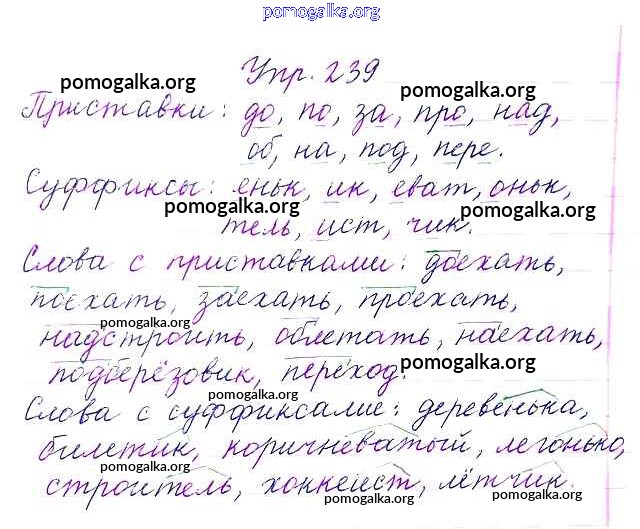 pomogalka.org
Упр. 239
pomogalka.org
pomogalka.org
Приставки: до, по, за, про, над,
об, на, под, пере.
Суффиксы: еньк, ик, еват, оньк,
pomogalka.org
pomogalka.org
тель, ист, чик.
Слова с приставками: доехать,
поехать, заехать, проехать,
pomogalka.org
pomogalka.org
надстроить, облетать, наехать,
pomogalka.org
подберёзовик, переход.
pomogalka.org
Слова с суффиксами: деревенька,
pomogalka.org
билетик, коричневатый, легонько,
pomogalka.org
строитель, хоккеист, лётчик.
pomogalka.org
pomogalka.org